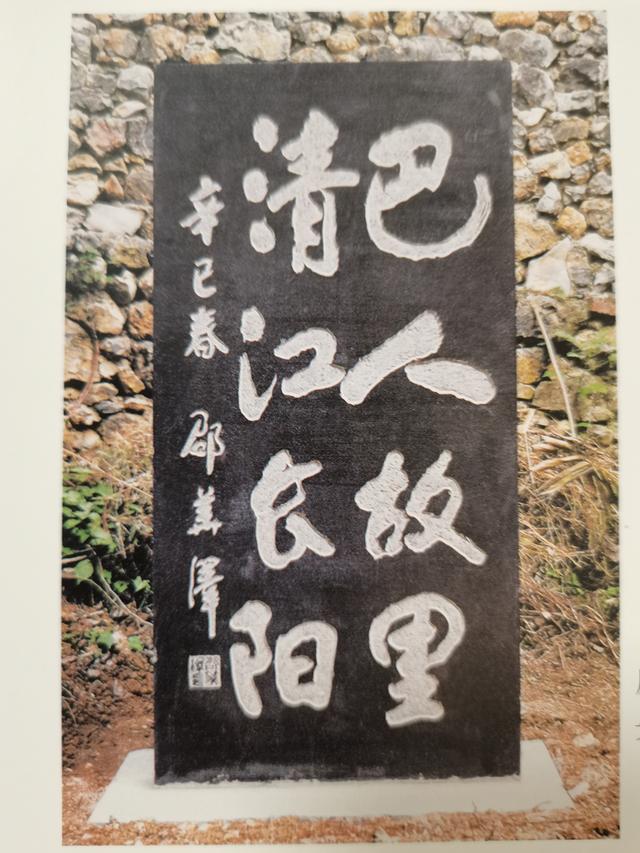 巴人故里
清江长阳
辛巳春 邵华泽